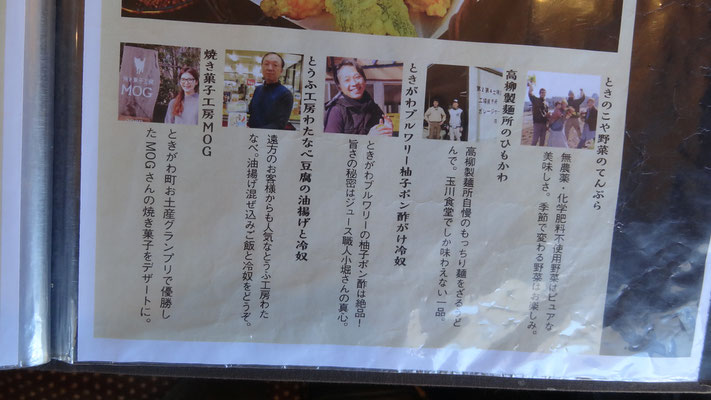 ときのこや野菜のてんぷら
無農薬・化学肥料不使用野菜はピュアな
美味しさ。季節で変わる野菜はお楽しみ。
高柳製麺所のひもかわ
高柳製麺所自慢のもっちり麺をざるうど
んで。玉川食堂でしか味わえない一品。
ときがわブルワリー柚子ポン酢がけ冷奴
ときがわブルワリーの柚子ポン酢は絶品！
旨さの秘密はジュース職人小堀さんの真心。
とうふ工房わたなべ豆腐の油揚げと冷奴
遠方のお客様からも人気なとうふ工房わた
なべ。油揚げ混ぜ込みご飯と冷奴をどうぞ。
焼き菓子工房MOG
ときがわ町お土産グランプリで優勝し
たMOGさんの焼き菓子をデザートに。
MOG